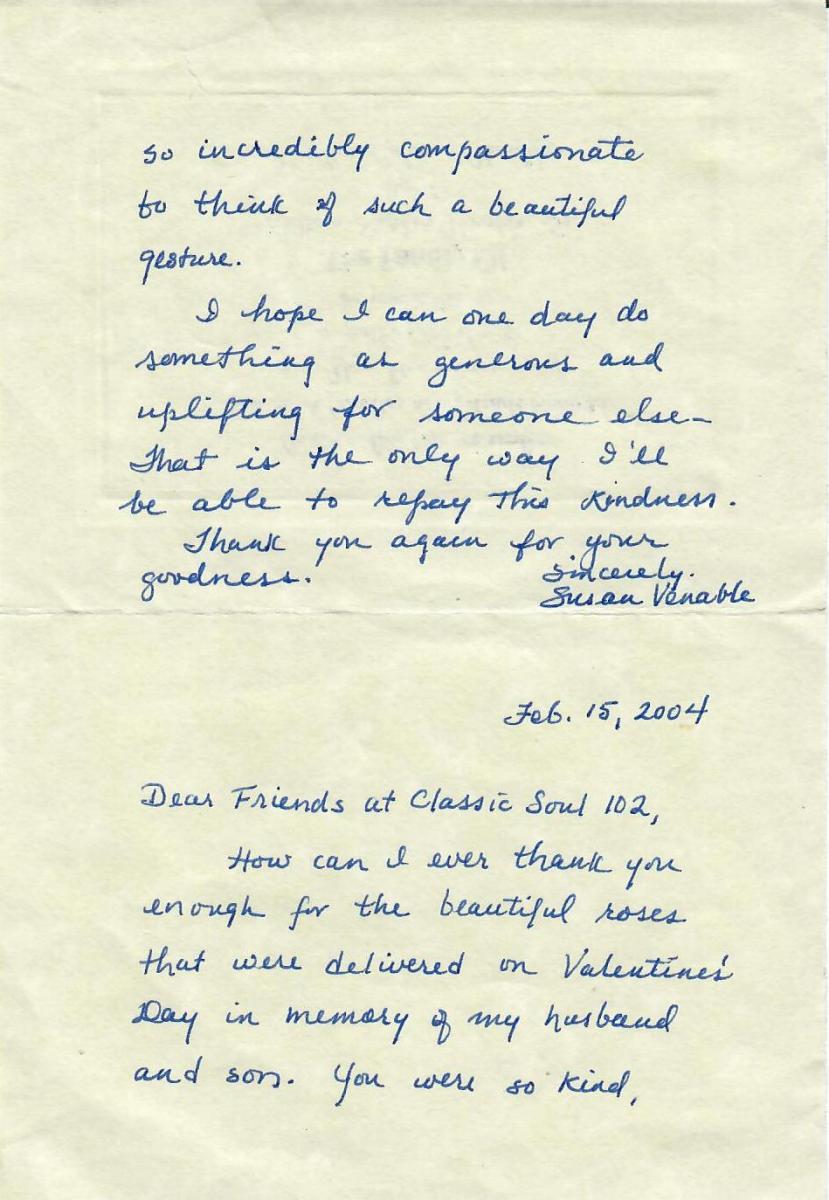 Feb. 15, 2004
Dear Friends at Classic Soul 102,
How can I ever thank you
enough for the beautiful roses
that were delivered on Valentine's
Day in memory of my husband
and son. You were so kind,
so incredibly compassionate
to think of such a beautiful
gesture.
I hope I can one day do
something as generous and
uplifting for someone else–
That is the only way I'll
be able to repay this kindness.
Thank you again for your
goodness.
Sincerely,
Susan Venable